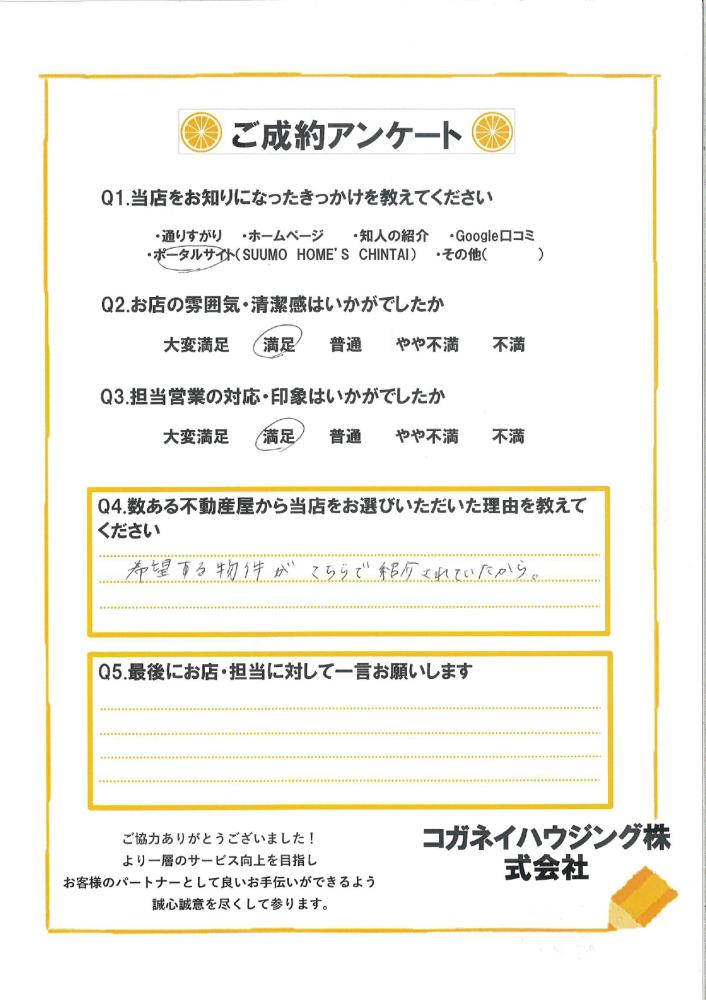 ご成約アンケート
Q1.当店をお知りになったきっかけを教えてください
・通りすがり ・ホームページ ・知人の紹介 ・Google口コミ
・ポータルサイト(SUUMO HOME'S CHINTAI) ・その他( )
Q2.お店の雰囲気・清潔感はいかがでしたか
大変満足 満足 普通 やや不満 不満
Q3.担当営業の対応・印象はいかがでしたか
大変満足 満足 普通 やや不満 不満
Q4.数ある不動産屋から当店をお選びいただいた理由を教えて
ください
希望する物件がこちらで紹介されていたから。
Q5.最後にお店・担当に対して一言お願いします
ご協力ありがとうございました！
より一層のサービス向上を目指し
お客様のパートナーとして良いお手伝いができるよう
誠心誠意を尽くして参ります。
コガネイハウジング株
式会社